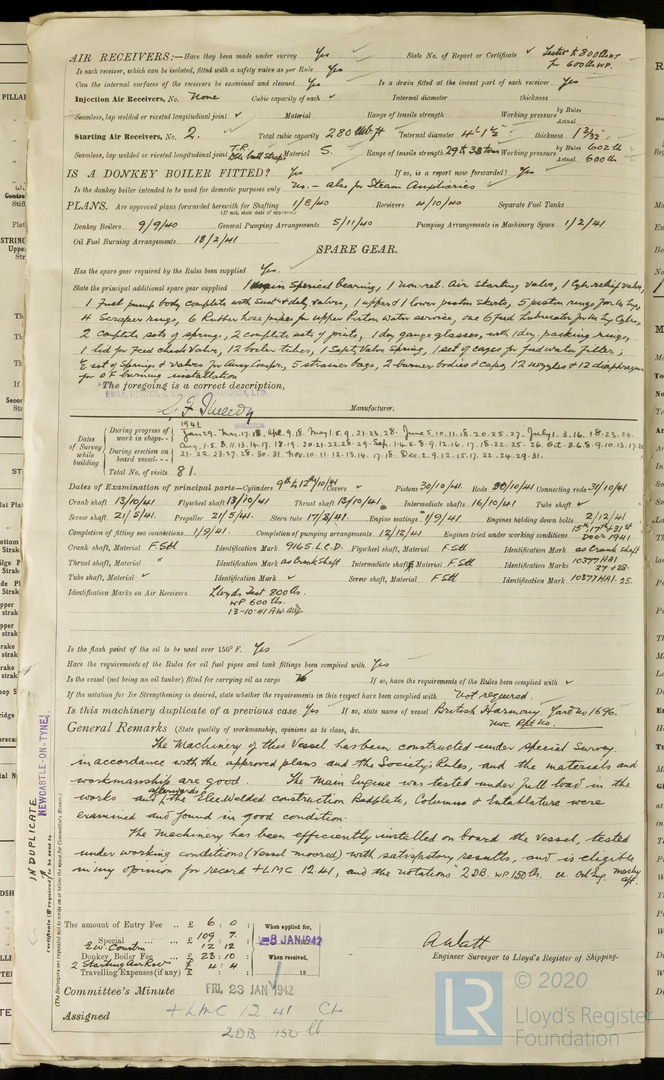 AIR RECEIVERS:—Have they been made under survey Yes ✓ State No. of Report or Certificate ✓ Tested to 800 lbs WT
for 600 lbs W.P.
Is each receiver, which can be isolated, fitted with a safety valve as per Rule Yes
Can the internal surfaces of the receivers be examined and cleaned Yes Is a drain fitted at the lowest part of each receiver Yes
Injection Air Receivers, No. None Cubic capacity of each ✓ Internal diameter thickness
Seamless, lap welded or riveted longitudinal joint ✓ Material Range of tensile strength Working pressure by Rules
Actual
Starting Air Receivers, No. 2. Total cubic capacity 280 cub. ft Internal diameter 4'-1½" thickness 1 3/32"
Seamless, lap welded or riveted longitudinal joint T.R. Dble butt straps Material S. Range of tensile strength 29 to 33 tons Working pressure by Rules 602 lb
Actual 600 lb
IS A DONKEY BOILER FITTED? Yes If so, is a report now forwarded? Yes
Is the donkey boiler intended to be used for domestic purposes only No. - also for Steam Auxiliaries
PLANS. Are approved plans forwarded herewith for Shafting 1/8/40 Receivers 4/10/40 Separate Fuel Tanks
(If not, state date of approval)
Donkey Boilers 9/9/40 General Pumping Arrangements 5/11/40 Pumping Arrangements in Machinery Space 1/2/41
Oil Fuel Burning Arrangements 18/2/41
SPARE GEAR.
Has the spare gear required by the Rules been supplied Yes.
State the principal additional spare gear supplied 1 main Sperical bearing, 1 non ret. Air Starting valve, 1 Cylr relief valve,
1 Fuel pump body complete with Suct & dely valves, 1 upper & 1 lower piston skirts, 5 piston rings for
4 Scraper rings, 6 Rubber hose pipes for upper Piston Water service, one 6 feed Lubricator for
2 complete sets of springs, 2 complete sets of joints, 1 doz gauge glasses, with 1 doz. packing rings,
1 lid for Feed check Valve, 12 boiler tubes, 1 Safety Valve Spring, 1 set of cages for feed water filter,
½ set of Springs & Valves for Aux. Compr, 5 strainer bags, 2 burner bodies & caps, 12 nozzles & 12 diaphragms
for O F burning installation
The foregoing is a correct description,
Manufacturer.
Dates of Survey while building
During progress of work in shops - - 1941
Jan 29. Mar. 17. 18. Apl. 9. 18. May. 1. 5. 9. 21. 23. 28. June 5. 10. 11. 18. 20. 25. 27. July 1. 3. 16. 18. 23. 24.
During erection on board vessel - - - Aug. 1. 5. 8. 11. 13. 14. 17. 18. 19. 20. 21. 22. 28. 29. Sep. 1. 4. 5. 8. 9. 12. 16. 17. 18. 22. 25. 26. Oct. 3. 6. 8. 9. 10. 13. 17. 20
21. 22. 23. 27. 28. 30. 31. Nov. 10. 11. 12. 13. 14. 17. 18. Dec. 2. 9. 12. 15. 17. 22. 24. 29. 31.
Total No. of visits 81.
Dates of Examination of principal parts—Cylinders 9th to 12th/10/41 Covers ✓ Pistons 30/10/41 Rods 30/10/41 Connecting rods 31/10/41
Crank shaft 13/10/41 Flywheel shaft 13/10/41 Thrust shaft 13/10/41 Intermediate shafts 16/10/41 Tube shaft ✓
Screw shaft 21/5/41. Propeller 21/5/41. Stern tube 17/8/41. Engine seatings 1/9/41. Engines holding down bolts 2/12/41
Completion of fitting sea connections 1/9/41. Completion of pumping arrangements 12/12/41 Engines tried under working conditions 15th 17th & 31st Decr 1941
Crank shaft, Material F. Stl Identification Mark 9165. L.C.D. Flywheel shaft, Material F. Stl Identification Mark as Crank Shaft
Thrust shaft, Material " Identification Mark as Crank Shaft Intermediate shafts, Material F. Stl Identification Marks 10377 HA1 27 & 28.
Tube shaft, Material ✓ Identification Mark ✓ Screw shaft, Material F. Stl Identification Mark 10377 HA1. 25.
Identification Marks on Air Receivers Lloyds Test 800 lbs.
WP 600 lbs.
13-10-41 A.W.
Is the flash point of the oil to be used over 150° F. Yes
Have the requirements of the Rules for oil fuel pipes and tank fittings been complied with Yes
Is the vessel (not being an oil tanker) fitted for carrying oil as cargo No If so, have the requirements of the Rules been complied with ✓
If the notation for Ice Strengthening is desired, state whether the requirements in this respect have been complied with Not required.
Is this machinery duplicate of a previous case Yes If so, state name of vessel British Harmony. Yard No 1696.
Nwc. Rpt No.
General Remarks (State quality of workmanship, opinions as to class, &c.
The Machinery of this Vessel has been constructed under special Survey
in accordance with the approved plans and the Society's Rules, and the materials and
workmanship are good. The Main Engine was tested under full load in the
works and afterwards the Elec. Welded construction Bedplate, Columns & Entablature were
examined and found in good condition.
The Machinery has been efficiently installed on board the Vessel, tested
under working conditions (Vessel moored) with satisfactory results, and is eligible
in my opinion for record +LMC 12.41, and the notations 2DB. WP. 150 lb. Oil Eng. machy aft.
The amount of Entry Fee .. £ 6 : 0 :
Special .. £ 109 . 7 .
E.W. Constn 12 12
Donkey Boiler Fee £ 23 : 10
2 Starting Air Recrs £ 4 : 4
Travelling Expenses (if any) £ :
When applied for,
-8 JAN 1942
When received,
19
A Watt
Engineer Surveyor to Lloyd's Register of Shipping.
Committee's Minute FRI. 23 JAN 1942
Assigned + LMC 12.41 CL
2DB 150 lb
IN DUPLICATE
NEWCASTLE-ON-TYNE
© 2020
LR
Lloyd's Register
Foundation